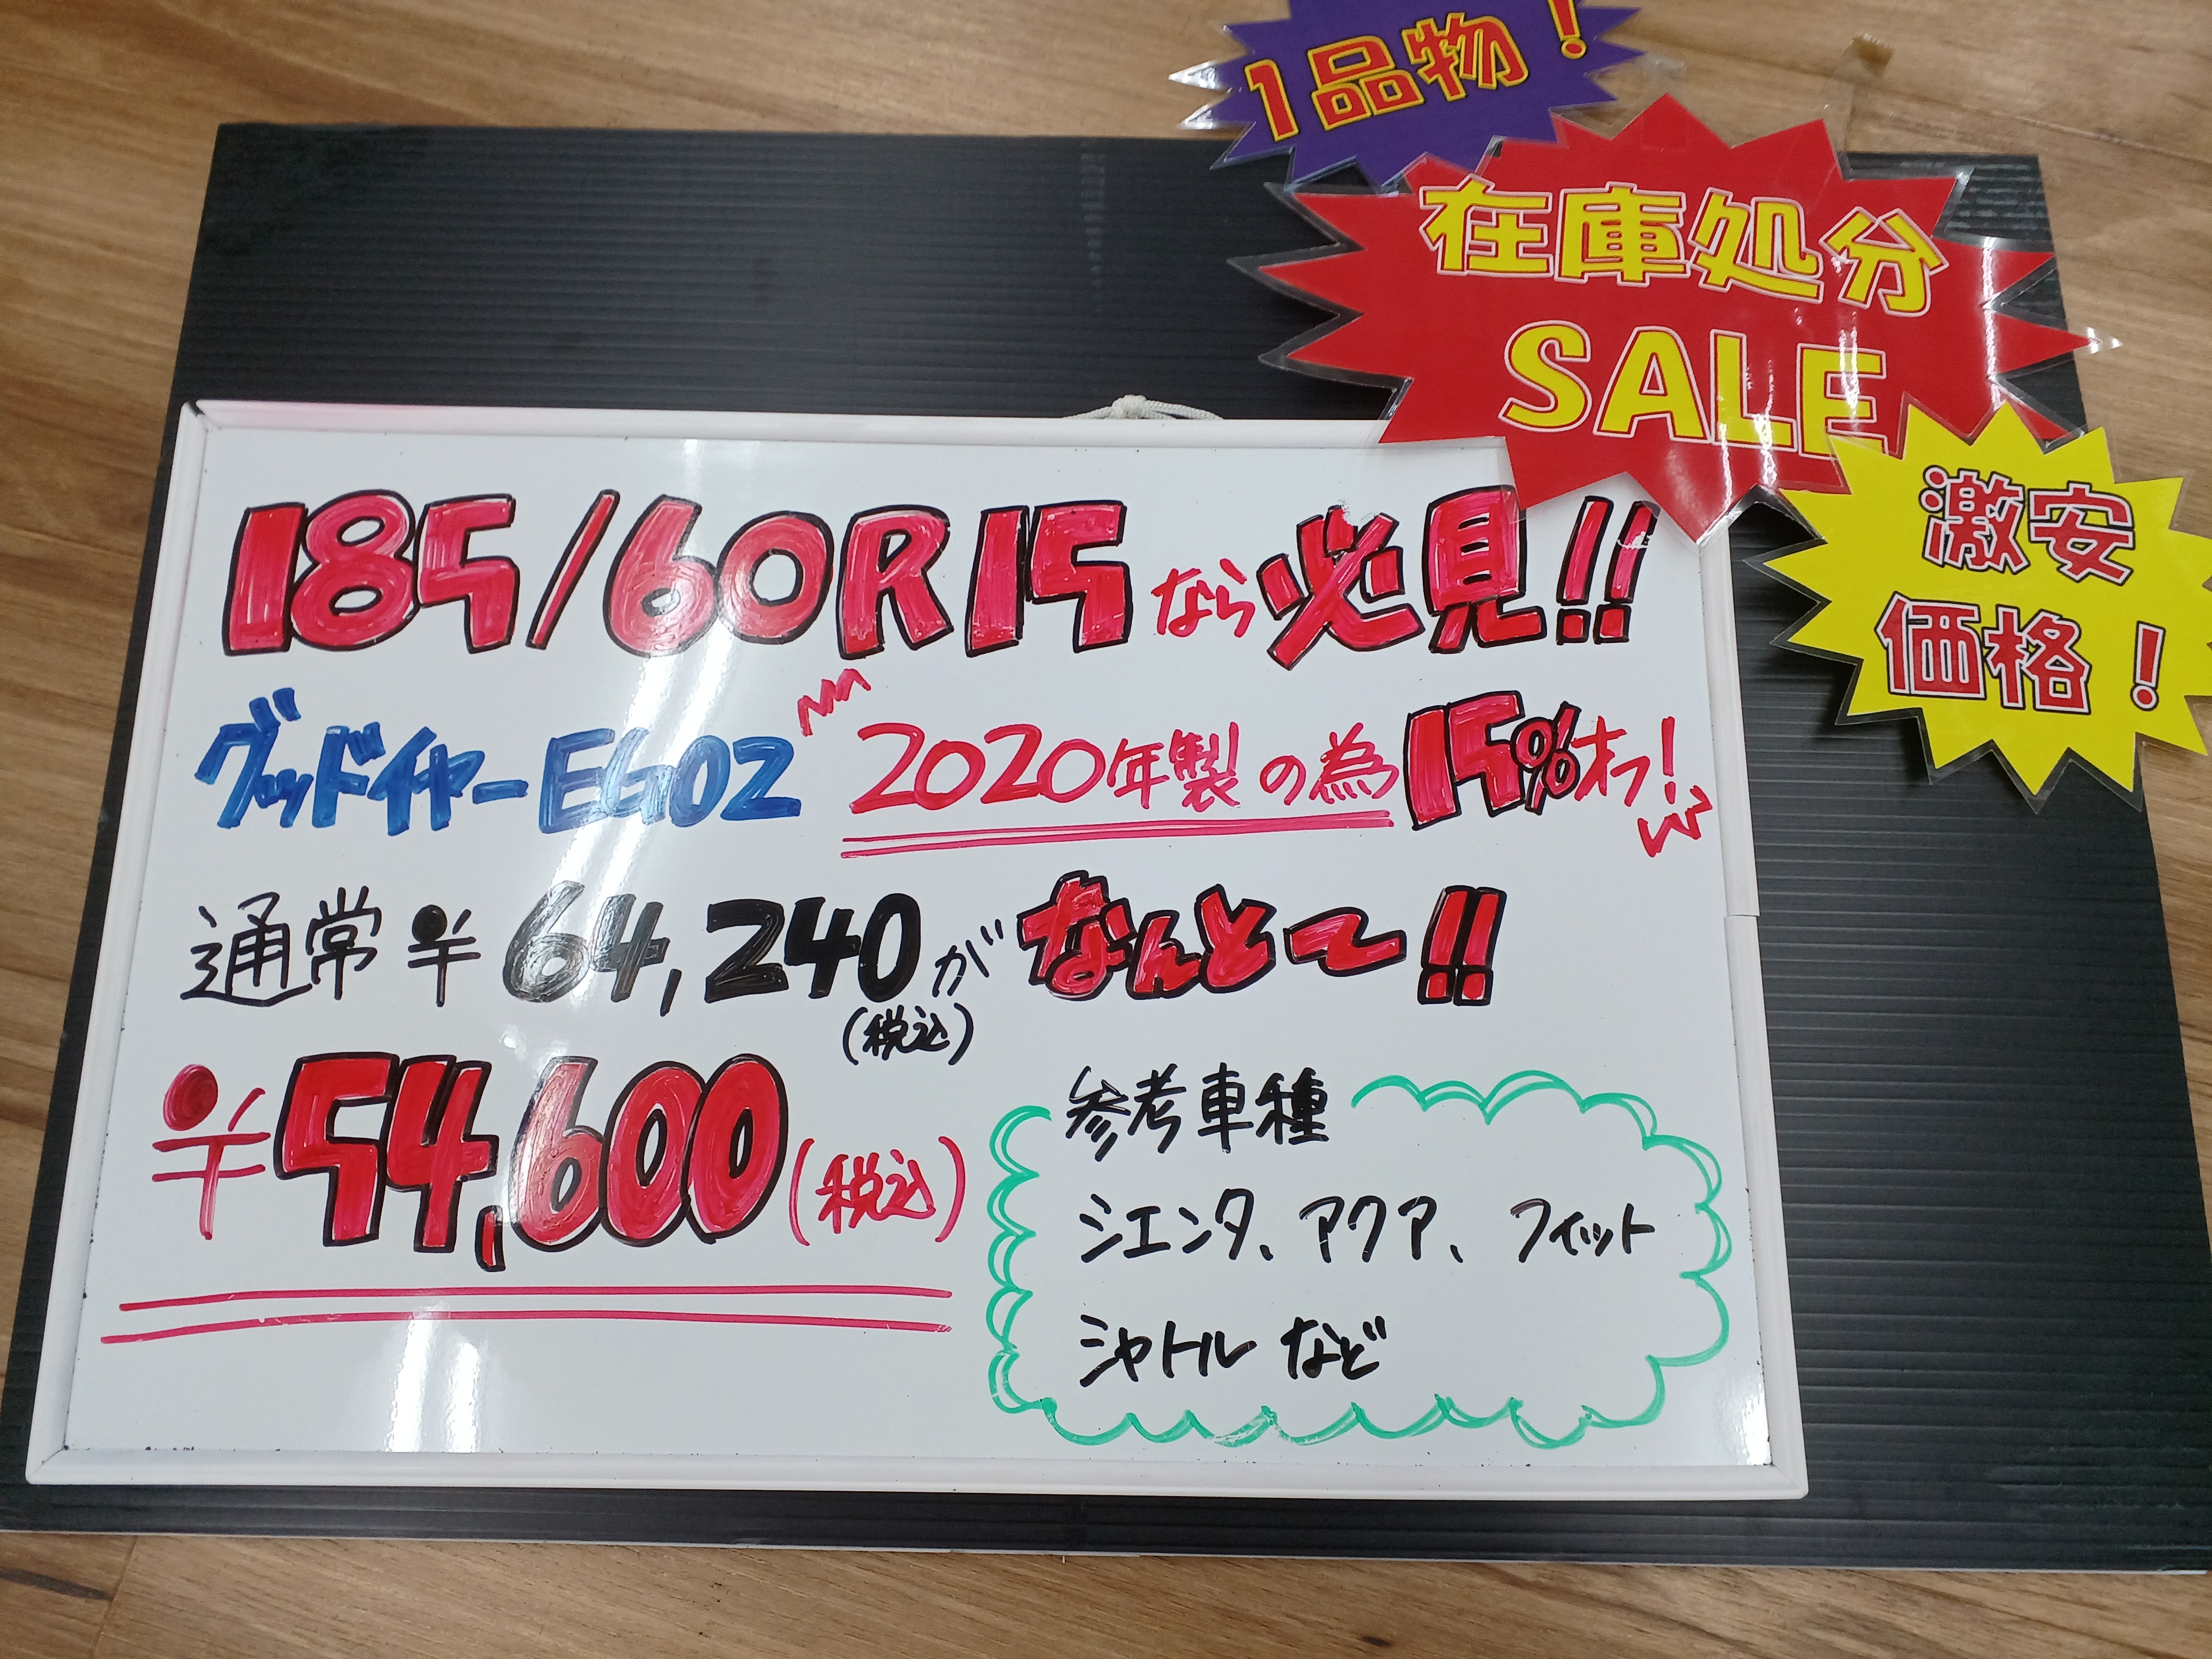 1品物！
在庫処分
SALE
激安
価格！
185/60R15なら必見!!
グッドイヤーEG02 2020年製の為15%オフ!
通常￥64,240がなんと〜!!
(税込)
￥54,600(税込)
参考車種
シエンタ、アクア、フィット
シャトルなど